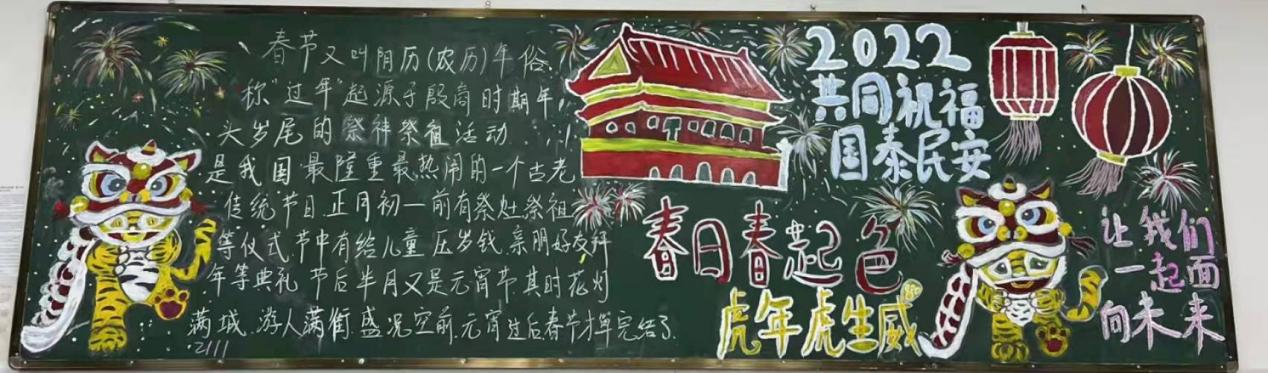 春节又叫阴历(农历)年俗
称"过年"起源于殷商时期年
头岁尾的祭神祭祖活动
是我国最隆重最热闹的一个古老
传统节日正月初一前有祭灶祭祖
等仪式节中有给儿童压岁钱.亲朋好友拜
年等典礼 节后半月又是元宵节其时花灯
满城.游人满街.盛况空前.元宵过后春节才算完结了
2111
2022
共同祝福
国泰民安
春日春起色
虎年虎生威
让我们
一起面
向未来